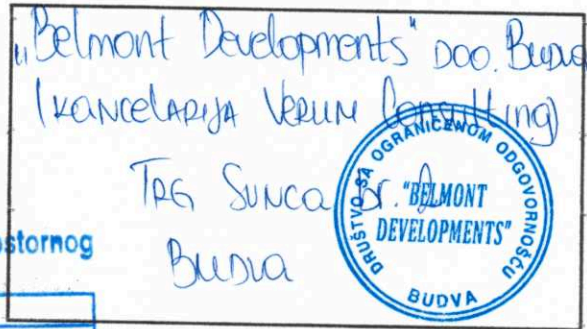 „Belmont Developments" DOO. Budva
(KANCELARIJA VERUM Consulting)
TRG SUNCA Br.
Budva
DRUŠTVO SA OGRANIČENOM ODGOVORNOŠĆU
"BELMONT
DEVELOPMENTS"
BUDVA